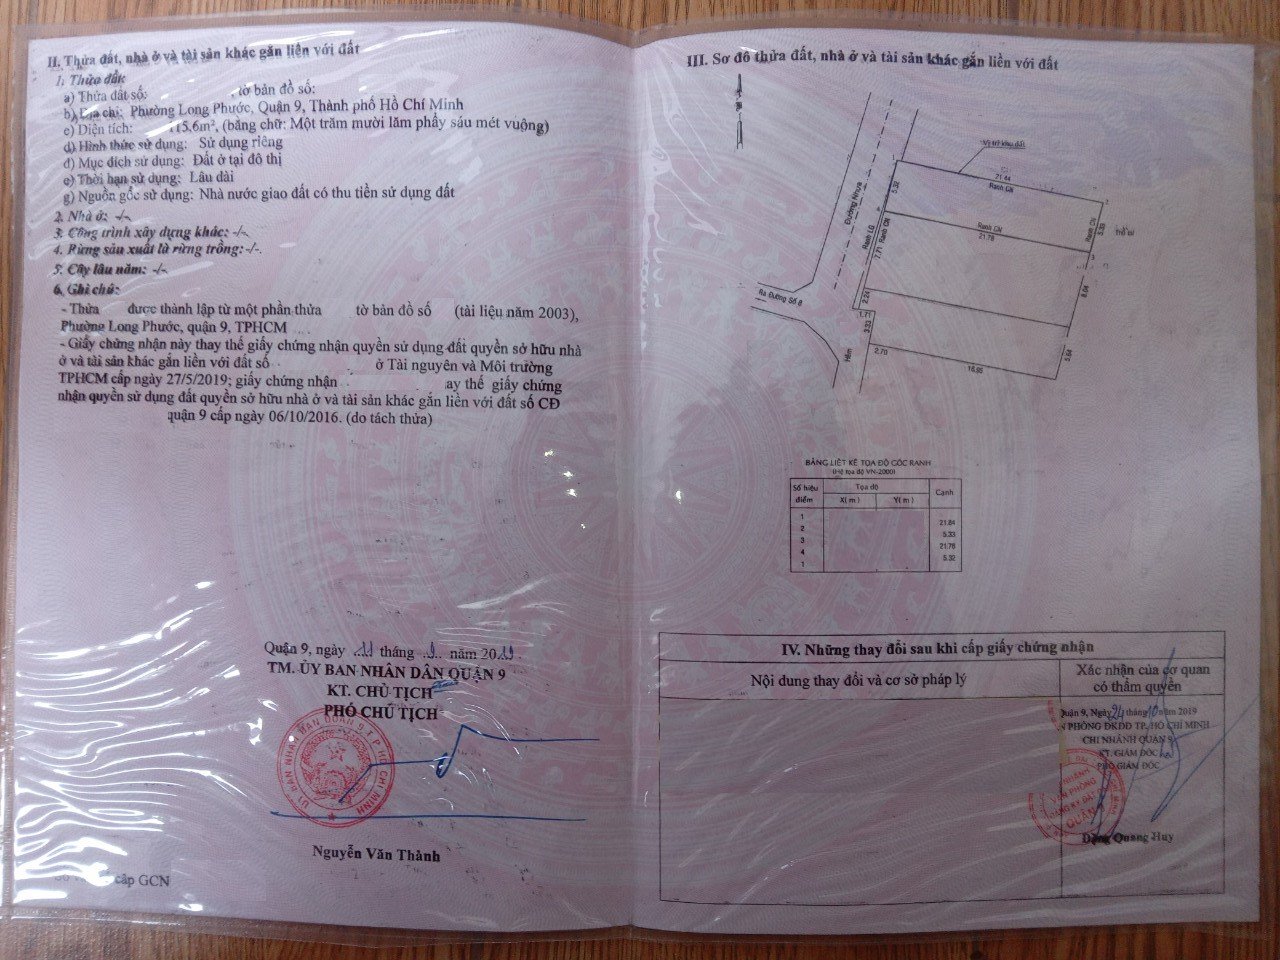 II. Thửa đất, nhà ở và tài sản khác gắn liền với đất
1. Thửa đất:
a) Thửa đất số: tờ bản đồ số:
b) Địa chỉ: Phường Long Phước, Quận 9, Thành phố Hồ Chí Minh
c) Diện tích: 115.6m², (bằng chữ: Một trăm mười lăm phẩy sáu mét vuông)
d) Hình thức sử dụng: Sử dụng riêng
đ) Mục đích sử dụng: Đất ở tại đô thị
e) Thời hạn sử dụng: Lâu dài
g) Nguồn gốc sử dụng: Nhà nước giao đất có thu tiền sử dụng đất
2. Nhà ở: -/-
3. Công trình xây dựng khác: -/-
4. Rừng sản xuất là rừng trồng: -/-
5. Cây lâu năm: -/-
6. Ghi chú:
- Thửa được thành lập từ một phần thửa tờ bản đồ số (tài liệu năm 2003),
Phường Long Phước, quận 9, TPHCM
- Giấy chứng nhận này thay thế giấy chứng nhận quyền sử dụng đất quyền sở hữu nhà
ở và tài sản khác gắn liền với đất số ở Tài nguyên và Môi trường
TPHCM cấp ngày 27/5/2019; giấy chứng nhận ay thế giấy chứng
nhận quyền sử dụng đất quyền sở hữu nhà ở và tài sản khác gắn liền với đất số CĐ
quận 9 cấp ngày 06/10/2016. (do tách thửa)
Quận 9, ngày tháng năm 20
TM. ỦY BAN NHÂN DÂN QUẬN 9
KT. CHỦ TỊCH
PHÓ CHỦ TỊCH
Nguyễn Văn Thành
cấp GCN
III. Sơ đồ thửa đất, nhà ở và tài sản khác gắn liền với đất
Vị trí khu đất
1
21.44
2
Ranh GN
5.32
Đường Nhựa
4
Ranh GN
21.78
Ranh GN
5.33
thổ cư
3
Ranh LG
7.71
Ranh GN
8.04
Ra Đường Số 8
2.24
1.71
3.33
Hẻm
2.70
16.95
5.64
BẢNG LIỆT KÊ TỌA ĐỘ GÓC RANH
(Hệ tọa độ VN-2000)
Số hiệu điểm Tọa độ Cạnh
X( m ) Y( m )
1
21.84
2
5.33
3
21.78
4
5.32
1
IV. Những thay đổi sau khi cấp giấy chứng nhận
Nội dung thay đổi và cơ sở pháp lý
Xác nhận của cơ quan
có thẩm quyền
Quận 9, Ngày 24 tháng 10 năm 2019
N PHÒNG ĐKĐĐ TP. HỒ CHÍ MINH
CHI NHÁNH QUẬN 9
KT. GIÁM ĐỐC
PHÓ GIÁM ĐỐC
Đặng Quang Huy